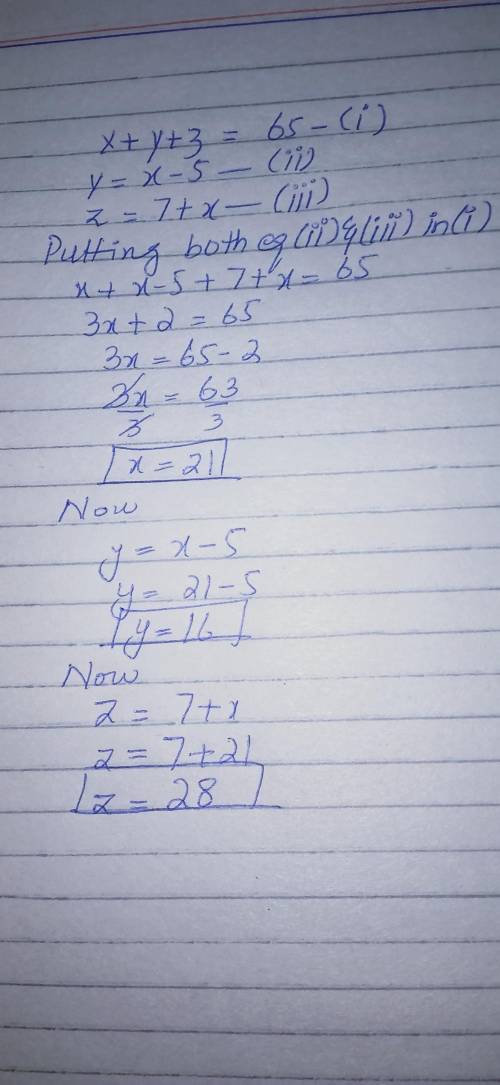 x + y + 3 = 65 - (i)
y = x - 5 — (ii)
z = 7 + x — (iii)
Putting both eq (ii) & (iii) in (i)
x + x - 5 + 7 + x = 65
3x + 2 = 65
3x = 65 - 2
3x/3 = 63/3
x = 21
Now
y = x - 5
y = 21 - 5
y = 16
Now
z = 7 + x
z = 7 + 21
z = 28